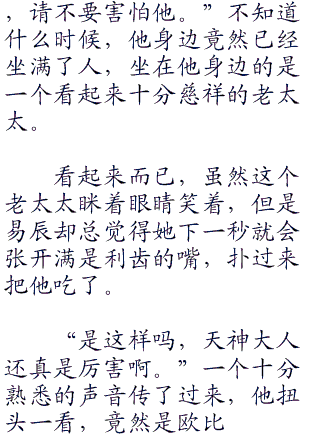 ，请不要害怕他。”不知道
什么时候，他身边竟然已经
坐满了人，坐在他身边的是
一个看起来十分慈祥的老太
太。
看起来而已，虽然这个
老太太眯着眼睛笑着，但是
易辰却总觉得她下一秒就会
张开满是利齿的嘴，扑过来
把他吃了。
“是这样吗，天神大人
还真是厉害啊。”一个十分
熟悉的声音传了过来，他扭
头一看，竟然是欧比